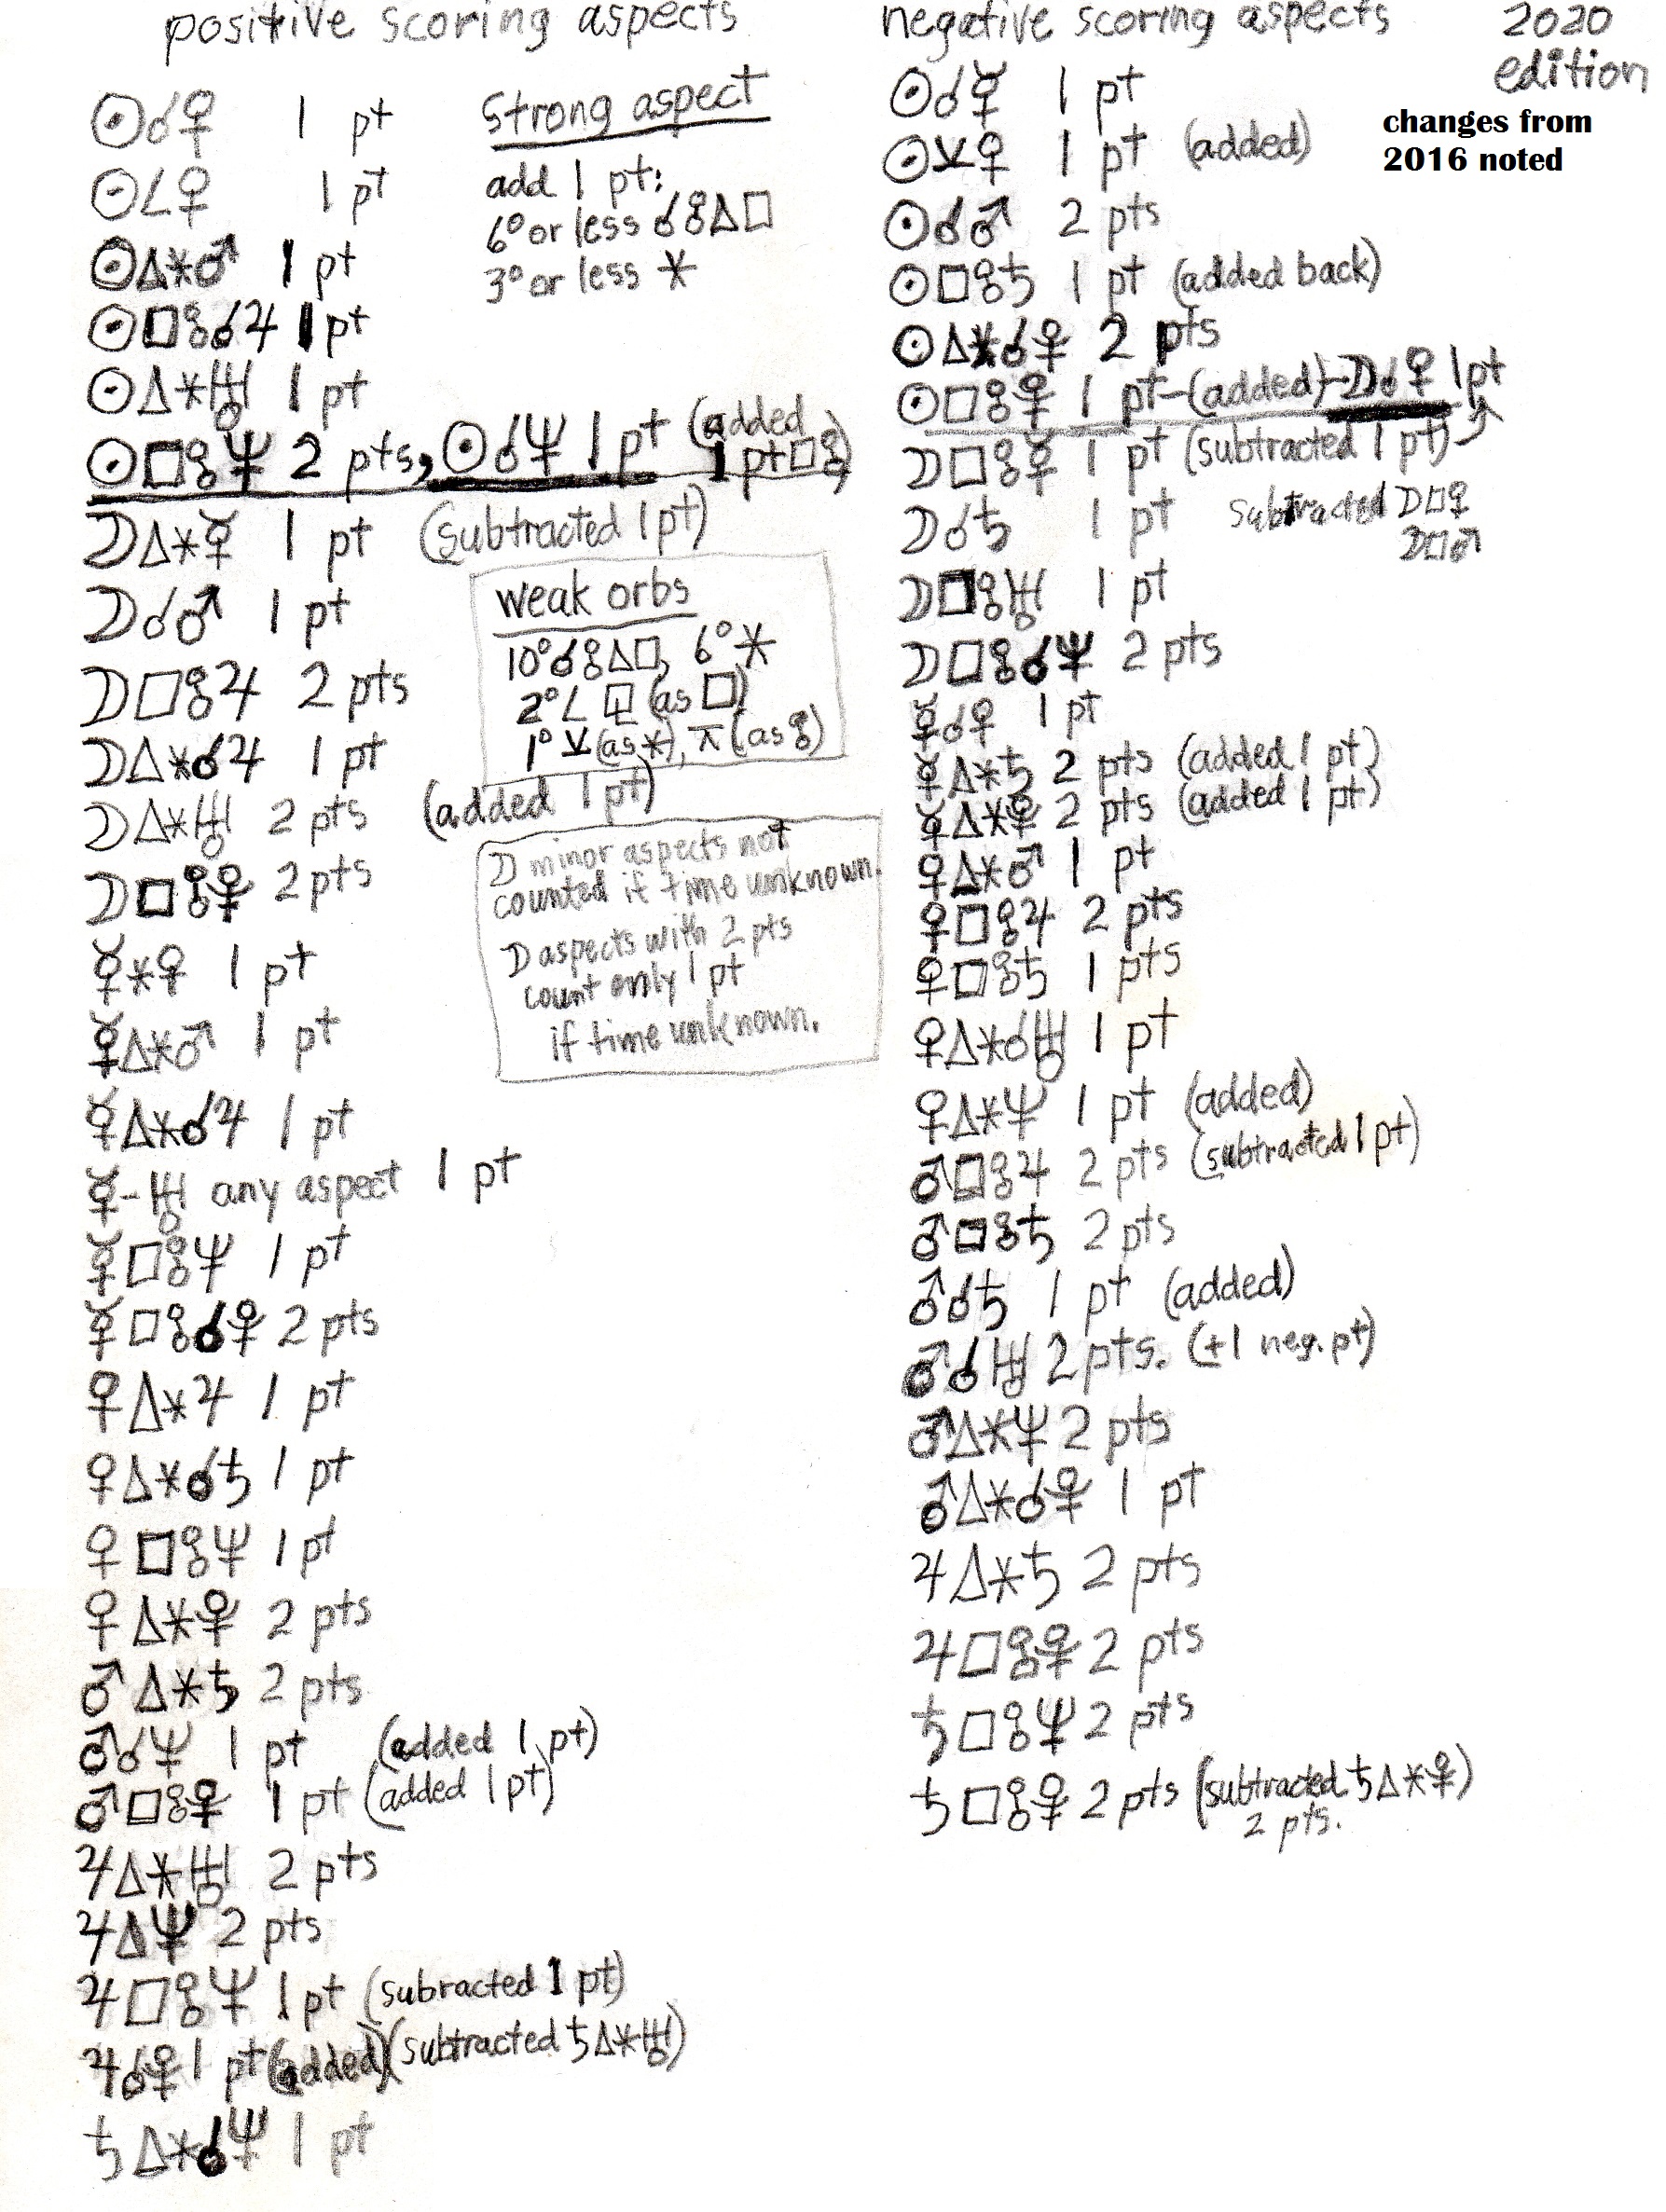 positive scoring aspects
☉☌♀ 1 pt
☉∠♀ 1 pt
☉△⚹♂ 1 pt
☉□☍☌♃ 1 pt
☉△⚹♅ 1 pt
☉□☍♆ 2 pts, ☉☌♆ 1 pt (added
1 pt □☍)
☽△⚹☿ 1 pt (subtracted 1 pt)
☽☌♂ 1 pt
☽□☍♃ 2 pts
☽△⚹☌♃ 1 pt
☽△⚹♅ 2 pts (added 1 pt)
☽□☍⯓ 2 pts
☿⚹♀ 1 pt
☿△⚹♂ 1 pt
☿△⚹☌♃ 1 pt
☿-♅ any aspect 1 pt
☿□☍♆ 1 pt
☿□☍☌⯓ 2 pts
♀△⚹♃ 1 pt
♀△⚹☌♄ 1 pt
♀□☍♆ 1 pt
♀△⚹⯓ 2 pts
♂△⚹♄ 2 pts
♂☌♆ 1 pt (added 1 pt)
♂□☍⯓ 1 pt (added 1 pt)
♃△⚹♅ 2 pts
♃△♆ 2 pts
♃□☍♆ 1 pt (subracted 1 pt)
♃☌⯓ 1 pt (added) (subtracted ♄△⚹♅)
♄△⚹☌♆ 1 pt
Strong aspect
add 1 pt:
6° or less ☌☍△□
3° or less ⚹
weak orbs
10° ☌☍△□, 6° ⚹
2° ∠ ⚼ (as □)
1° ⚺ (as ⚹), ⚻ (as ☍)
☽ minor aspects not
counted if time unknown.
☽ aspects with 2 pts
count only 1 pt
if time unknown.
negative scoring aspects
☉☌☿ 1 pt
☉⚺♀ 1 pt (added)
☉☌♂ 2 pts
☉□☍♄ 1 pt (added back)
☉△⚹☌⯓ 2 pts
☉□☍⯓ 1 pt-(added)-☽☌♀ 1 pt
☽□☍☿ 1 pt (subtracted 1 pt)
☽☌♄ 1 pt subtracted ☽□♀
☽□♂
☽□☍♅ 1 pt
☽□☍☌♆ 2 pts
☿☌♀ 1 pt
☿△⚹♄ 2 pts (added 1 pt)
☿△⚹⯓ 2 pts (added 1 pt)
♀△⚹♂ 1 pt
♀□☍♃ 2 pts
♀□☍♄ 1 pts
♀△⚹☌♅ 1 pt
♀△⚹♆ 1 pt (added)
♂□☍♃ 2 pts (subtracted 1 pt)
♂□☍♄ 2 pts
♂☌♄ 1 pt (added)
♂☌♅ 2 pts. (+1 neg. pt)
♂△⚹♆ 2 pts
♂△⚹☌⯓ 1 pt
♃△⚹♄ 2 pts
♃□☍⯓ 2 pts
♄□☍♆ 2 pts
♄□☍⯓ 2 pts (subtracted ♄△⚹⯓)
2 pts.
2020
edition
changes from
2016 noted